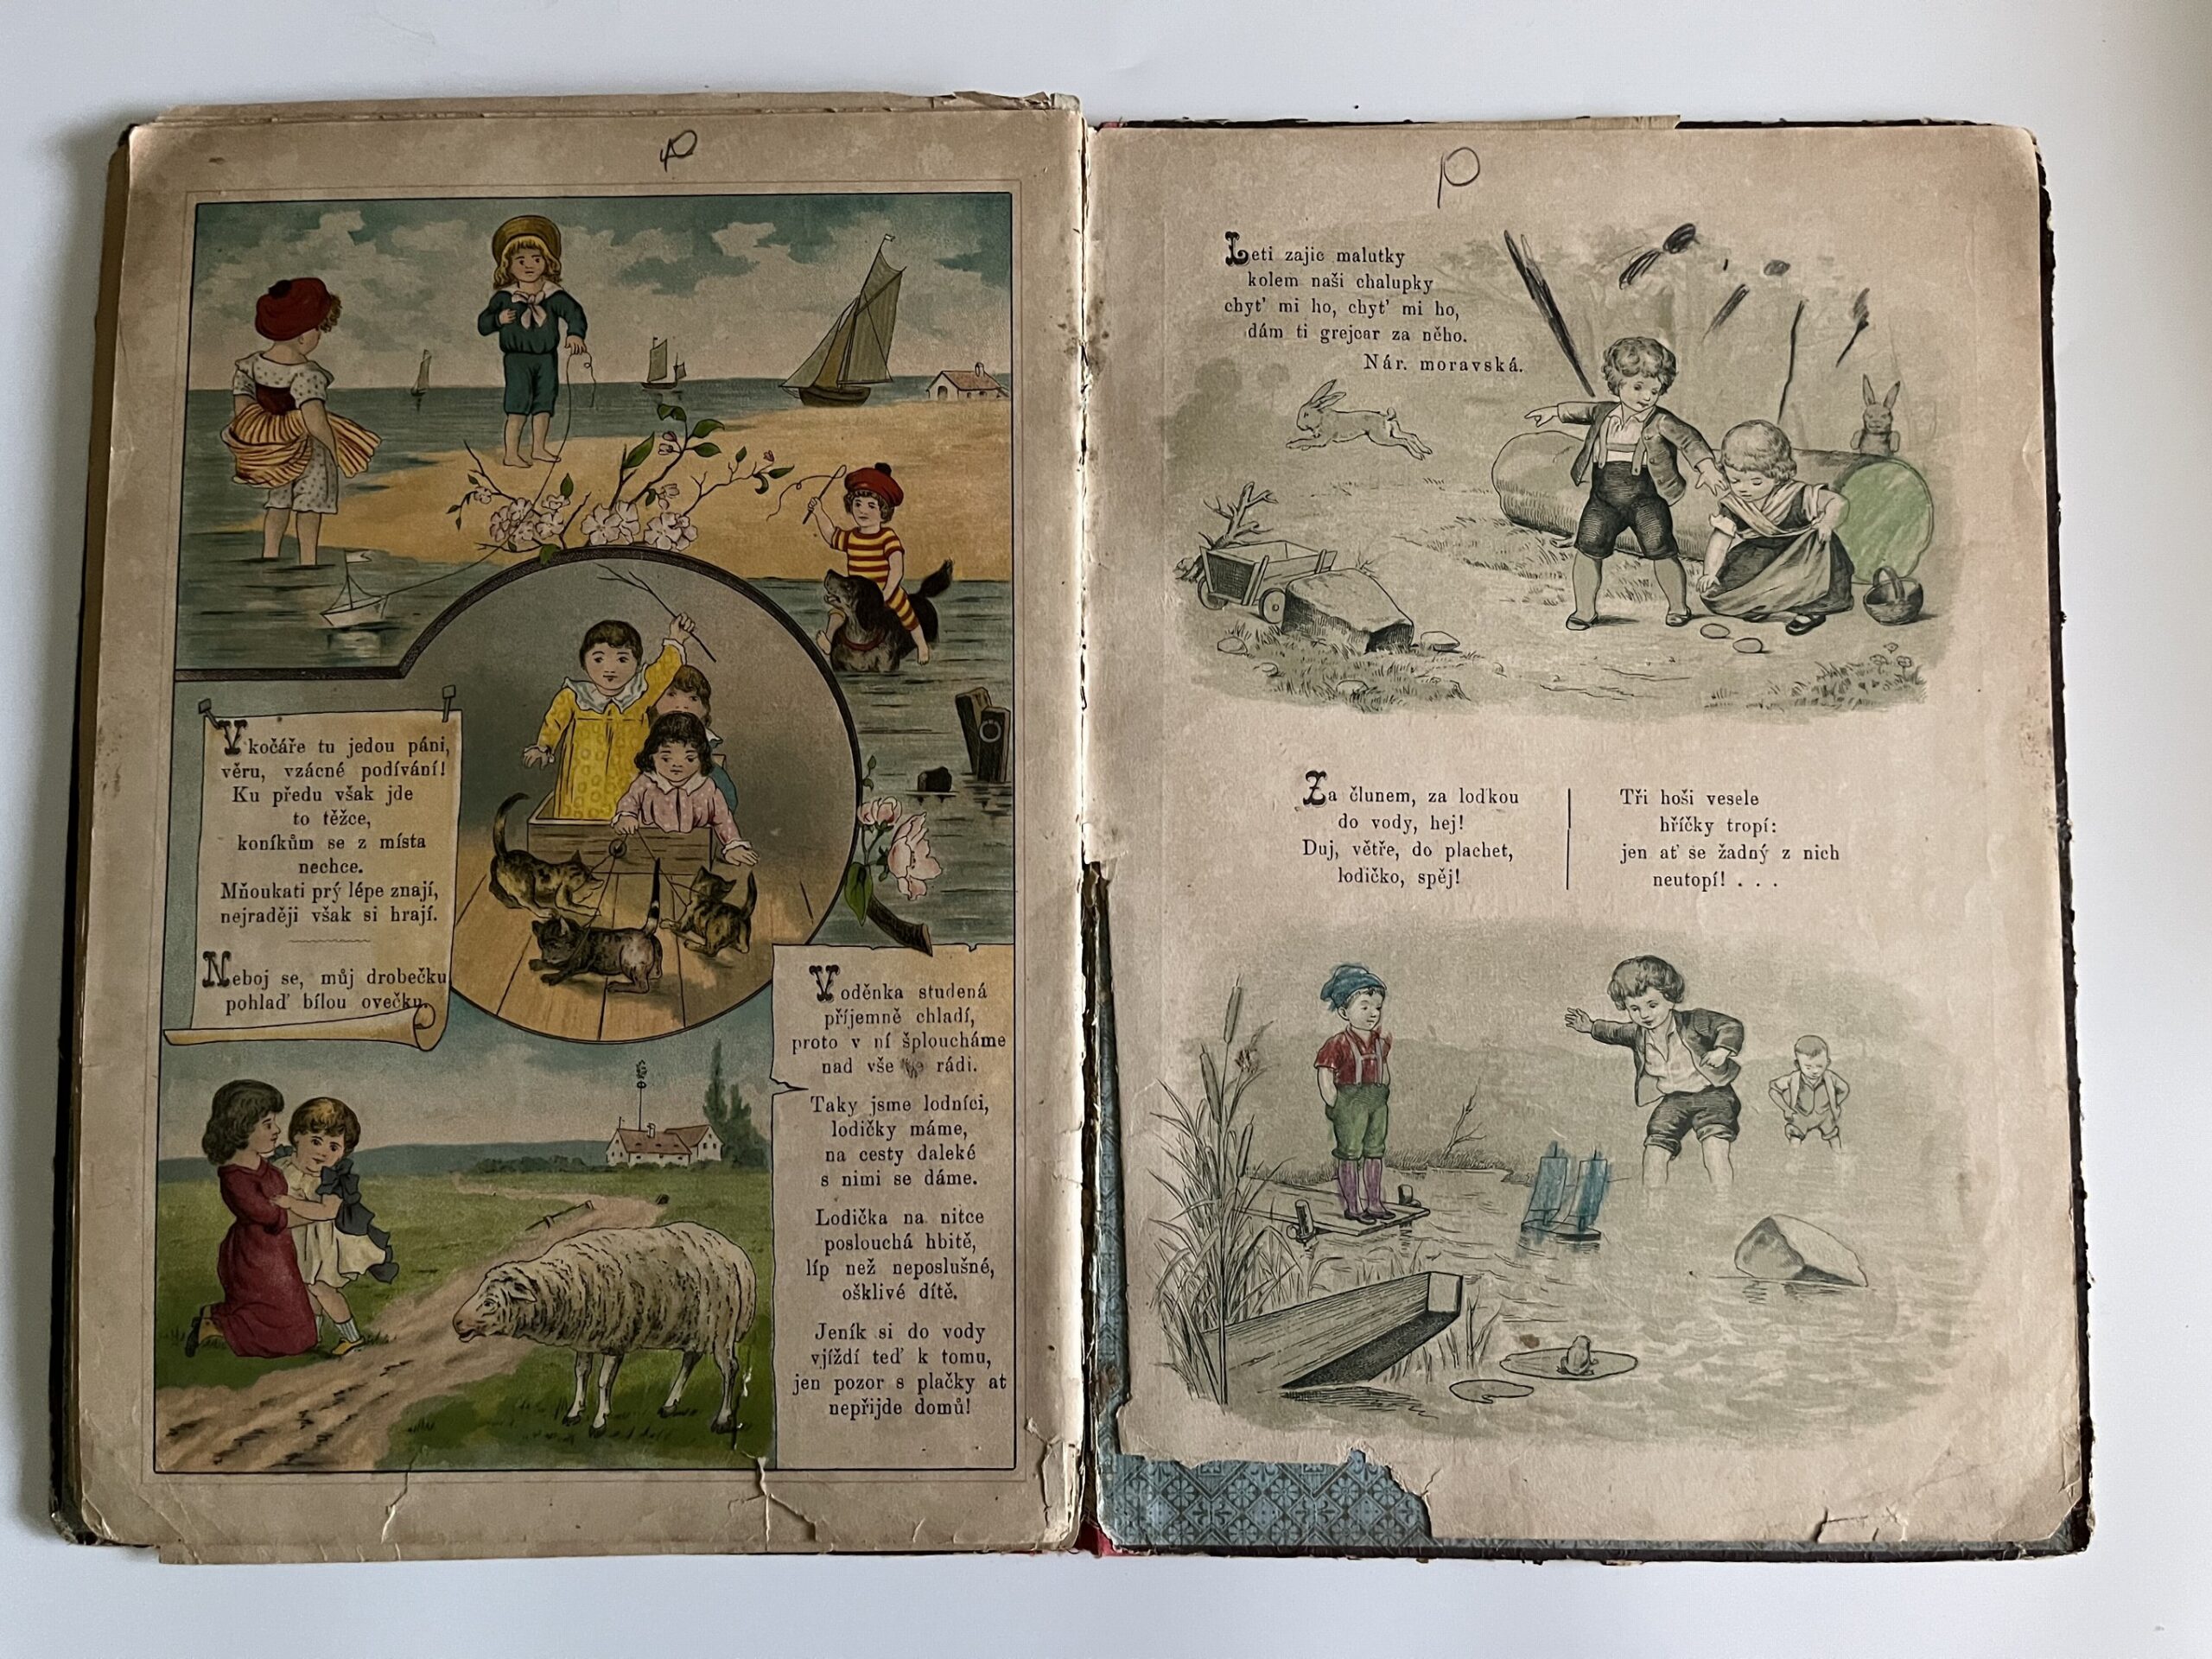 p
V kočáře tu jedou páni,
věru, vzácné podívání!
Ku předu však jde
to těžce,
koníkům se z místa
nechce.
Mňoukati prý lépe znají,
nejraději však si hrají.
Neboj se, můj drobečku
pohlaď bílou ovečku.
Voděnka studená
příjemně chladí,
proto v ní šploucháme
nad vše rádi.
Taky jsme lodníci,
lodičky máme,
na cesty daleké
s nimi se dáme.
Lodička na nitce
poslouchá hbitě,
líp než neposlušné,
ošklivé dítě.
Jeník si do vody
vjíždí teď k tomu,
jen pozor s plačky at
nepřijde domů!
p
Leti zajic malutky
kolem naši chalupky
chyt' mi ho, chyt' mi ho,
dám ti grejcar za něho.
Nár. moravská.
Za člunem, za loďkou
do vody, hej!
Duj, větře, do plachet,
lodičko, spěj!
Tři hoši vesele
hříčky tropí:
jen ať se žadný z nich
neutopí! . . .